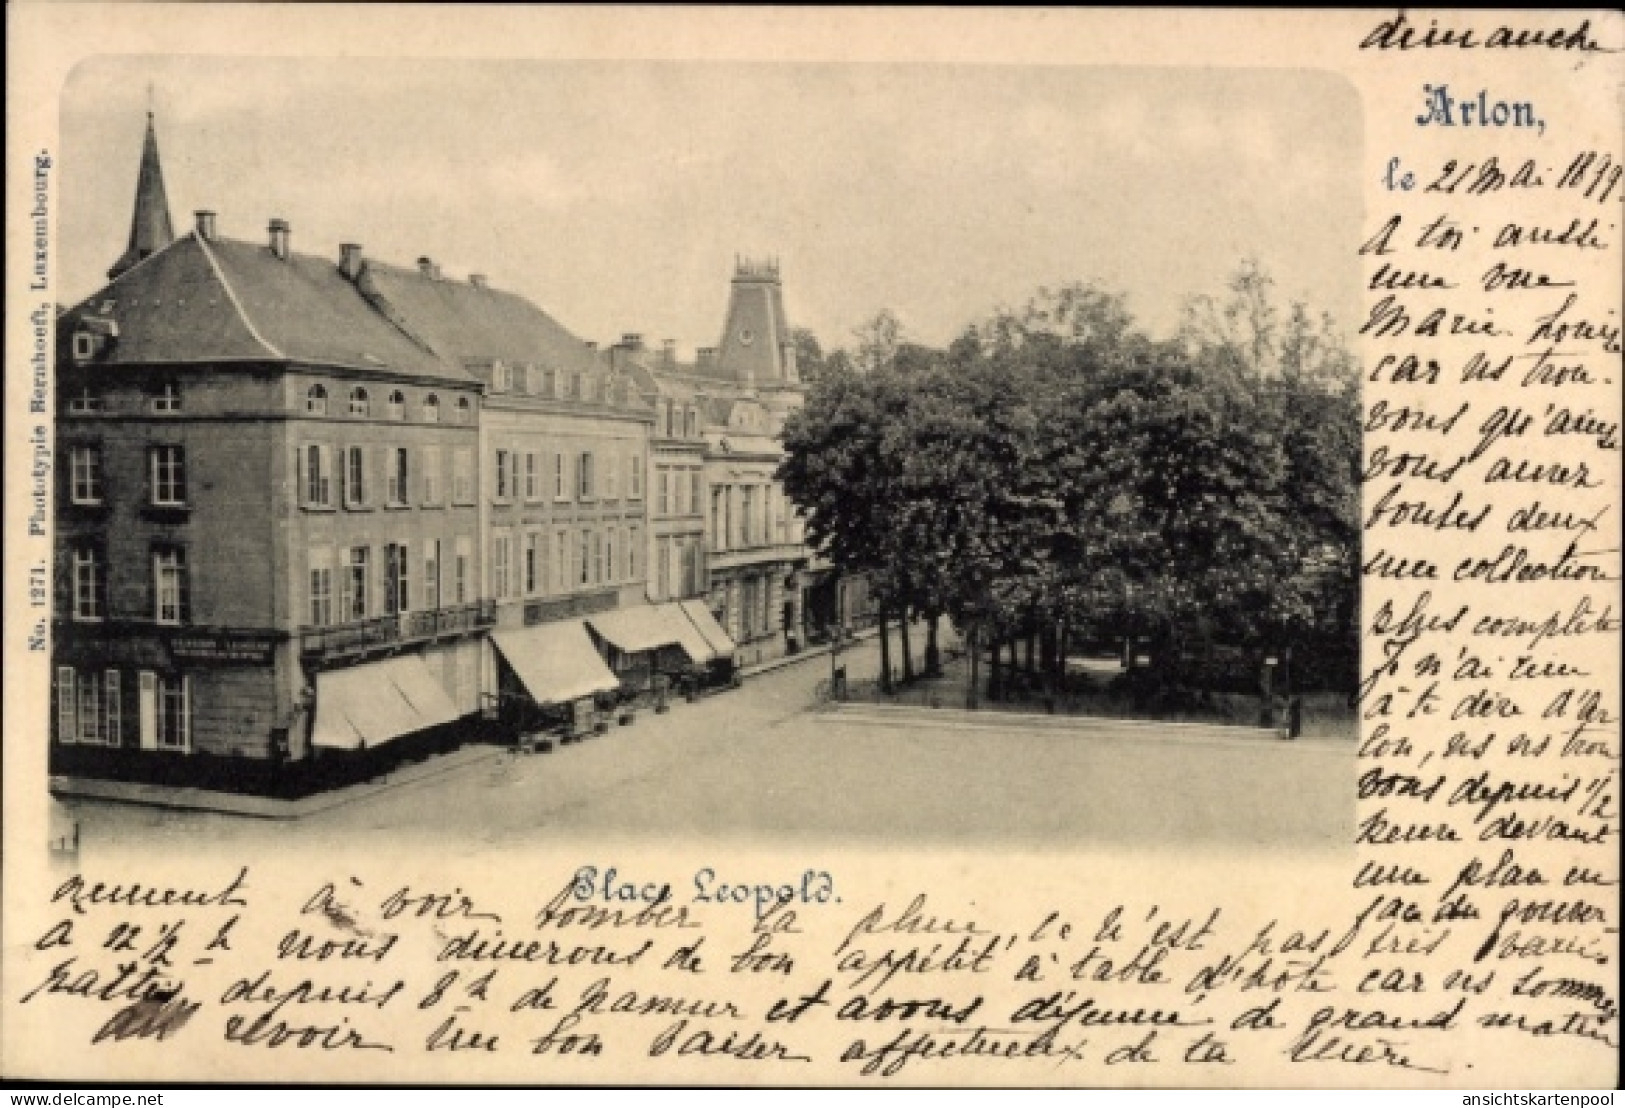 dimanche
Arlon,
le 21 Mai 1899.
A toi aussi
une vue
Marie. Louise
car ns trou.
vons qu'ainsi
vous aurez
toutes deux
une collection
plus complète
Je n'ai rien
à te dire d'Ar
lon, ns ns trou
vons depuis 1/2
heure devant
une place en
face du gouver-
nement à voir tomber la pluie, ce n'est pas très varié.
A 12 1/2 h nous dinerons de bon appétit à table d'hôte car ns sommes
partis depuis 8 h de Namur et avons déjeuné de grand matin
Au revoir un bon baiser affectueux de ta Mère.
Place Leopold.
No. 1271. Phototypie Bernhoeft, Luxembourg.
www.delcampe.net
ansichtskartenpool